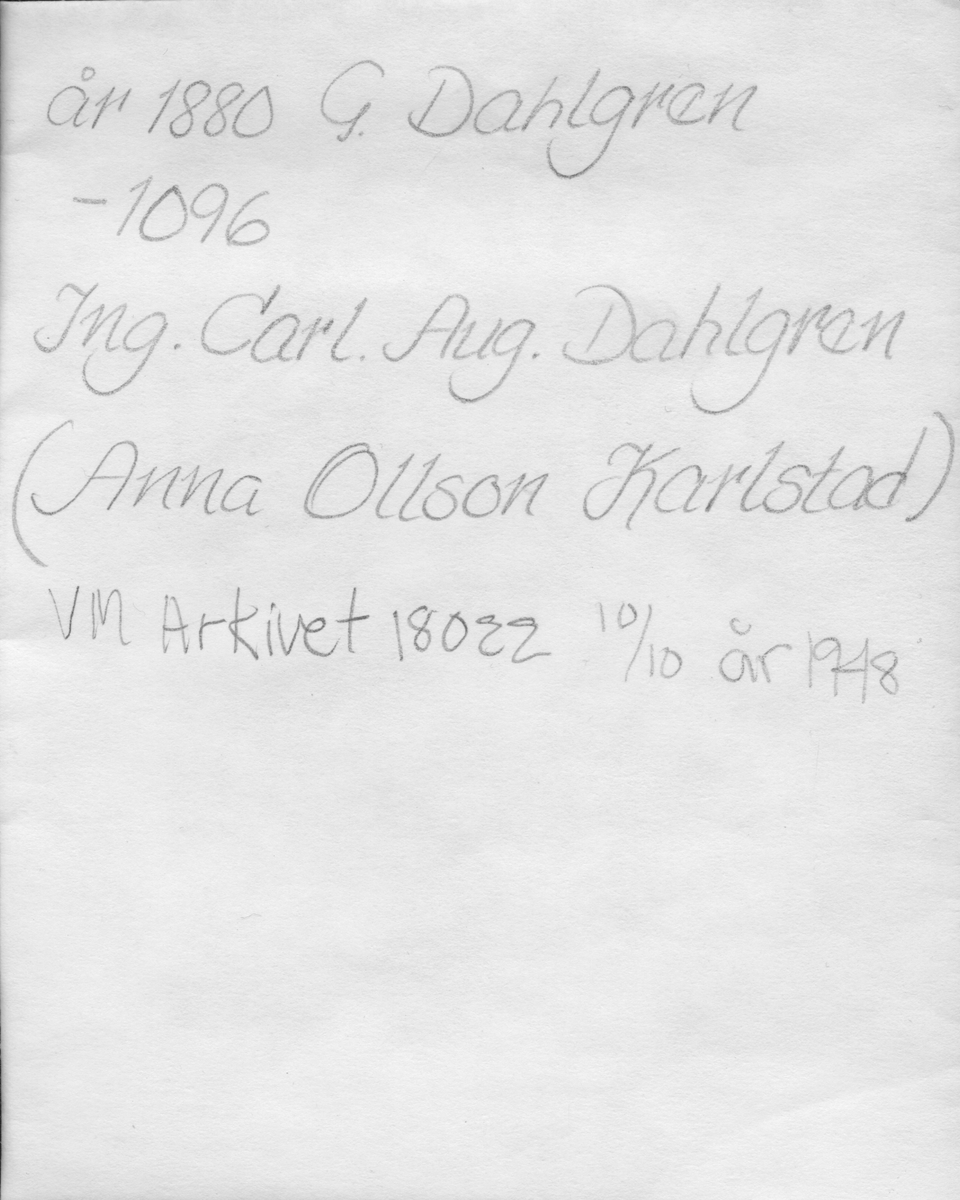 år 1880 G. Dahlgren
-1096
Ing. Carl. Aug. Dahlgren
(Anna Ollson Karlstad)
VM Arkivet 18022 10/10 år 1948